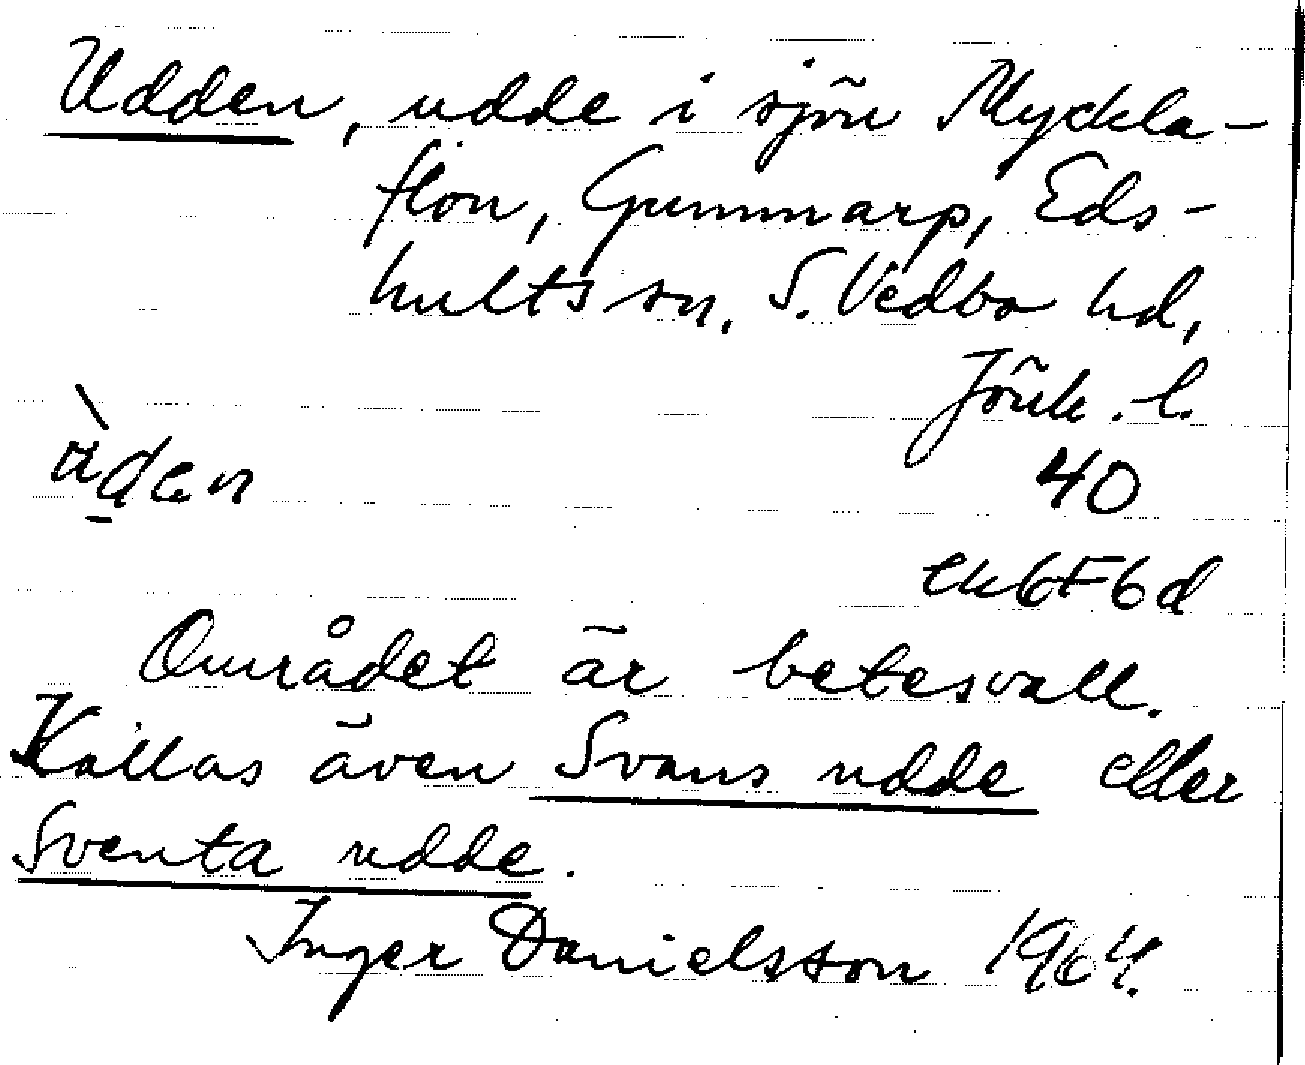 Udden, udde i sjön Myckla-
flon, Gummarp, Eds-
hults sn, S. Vedbo hd,
Jönk. l.
40
ek 6F6d
Området är betesvall.
Kallas även Svans udde eller
Sventa udde.
Inger Danielsson 1964.